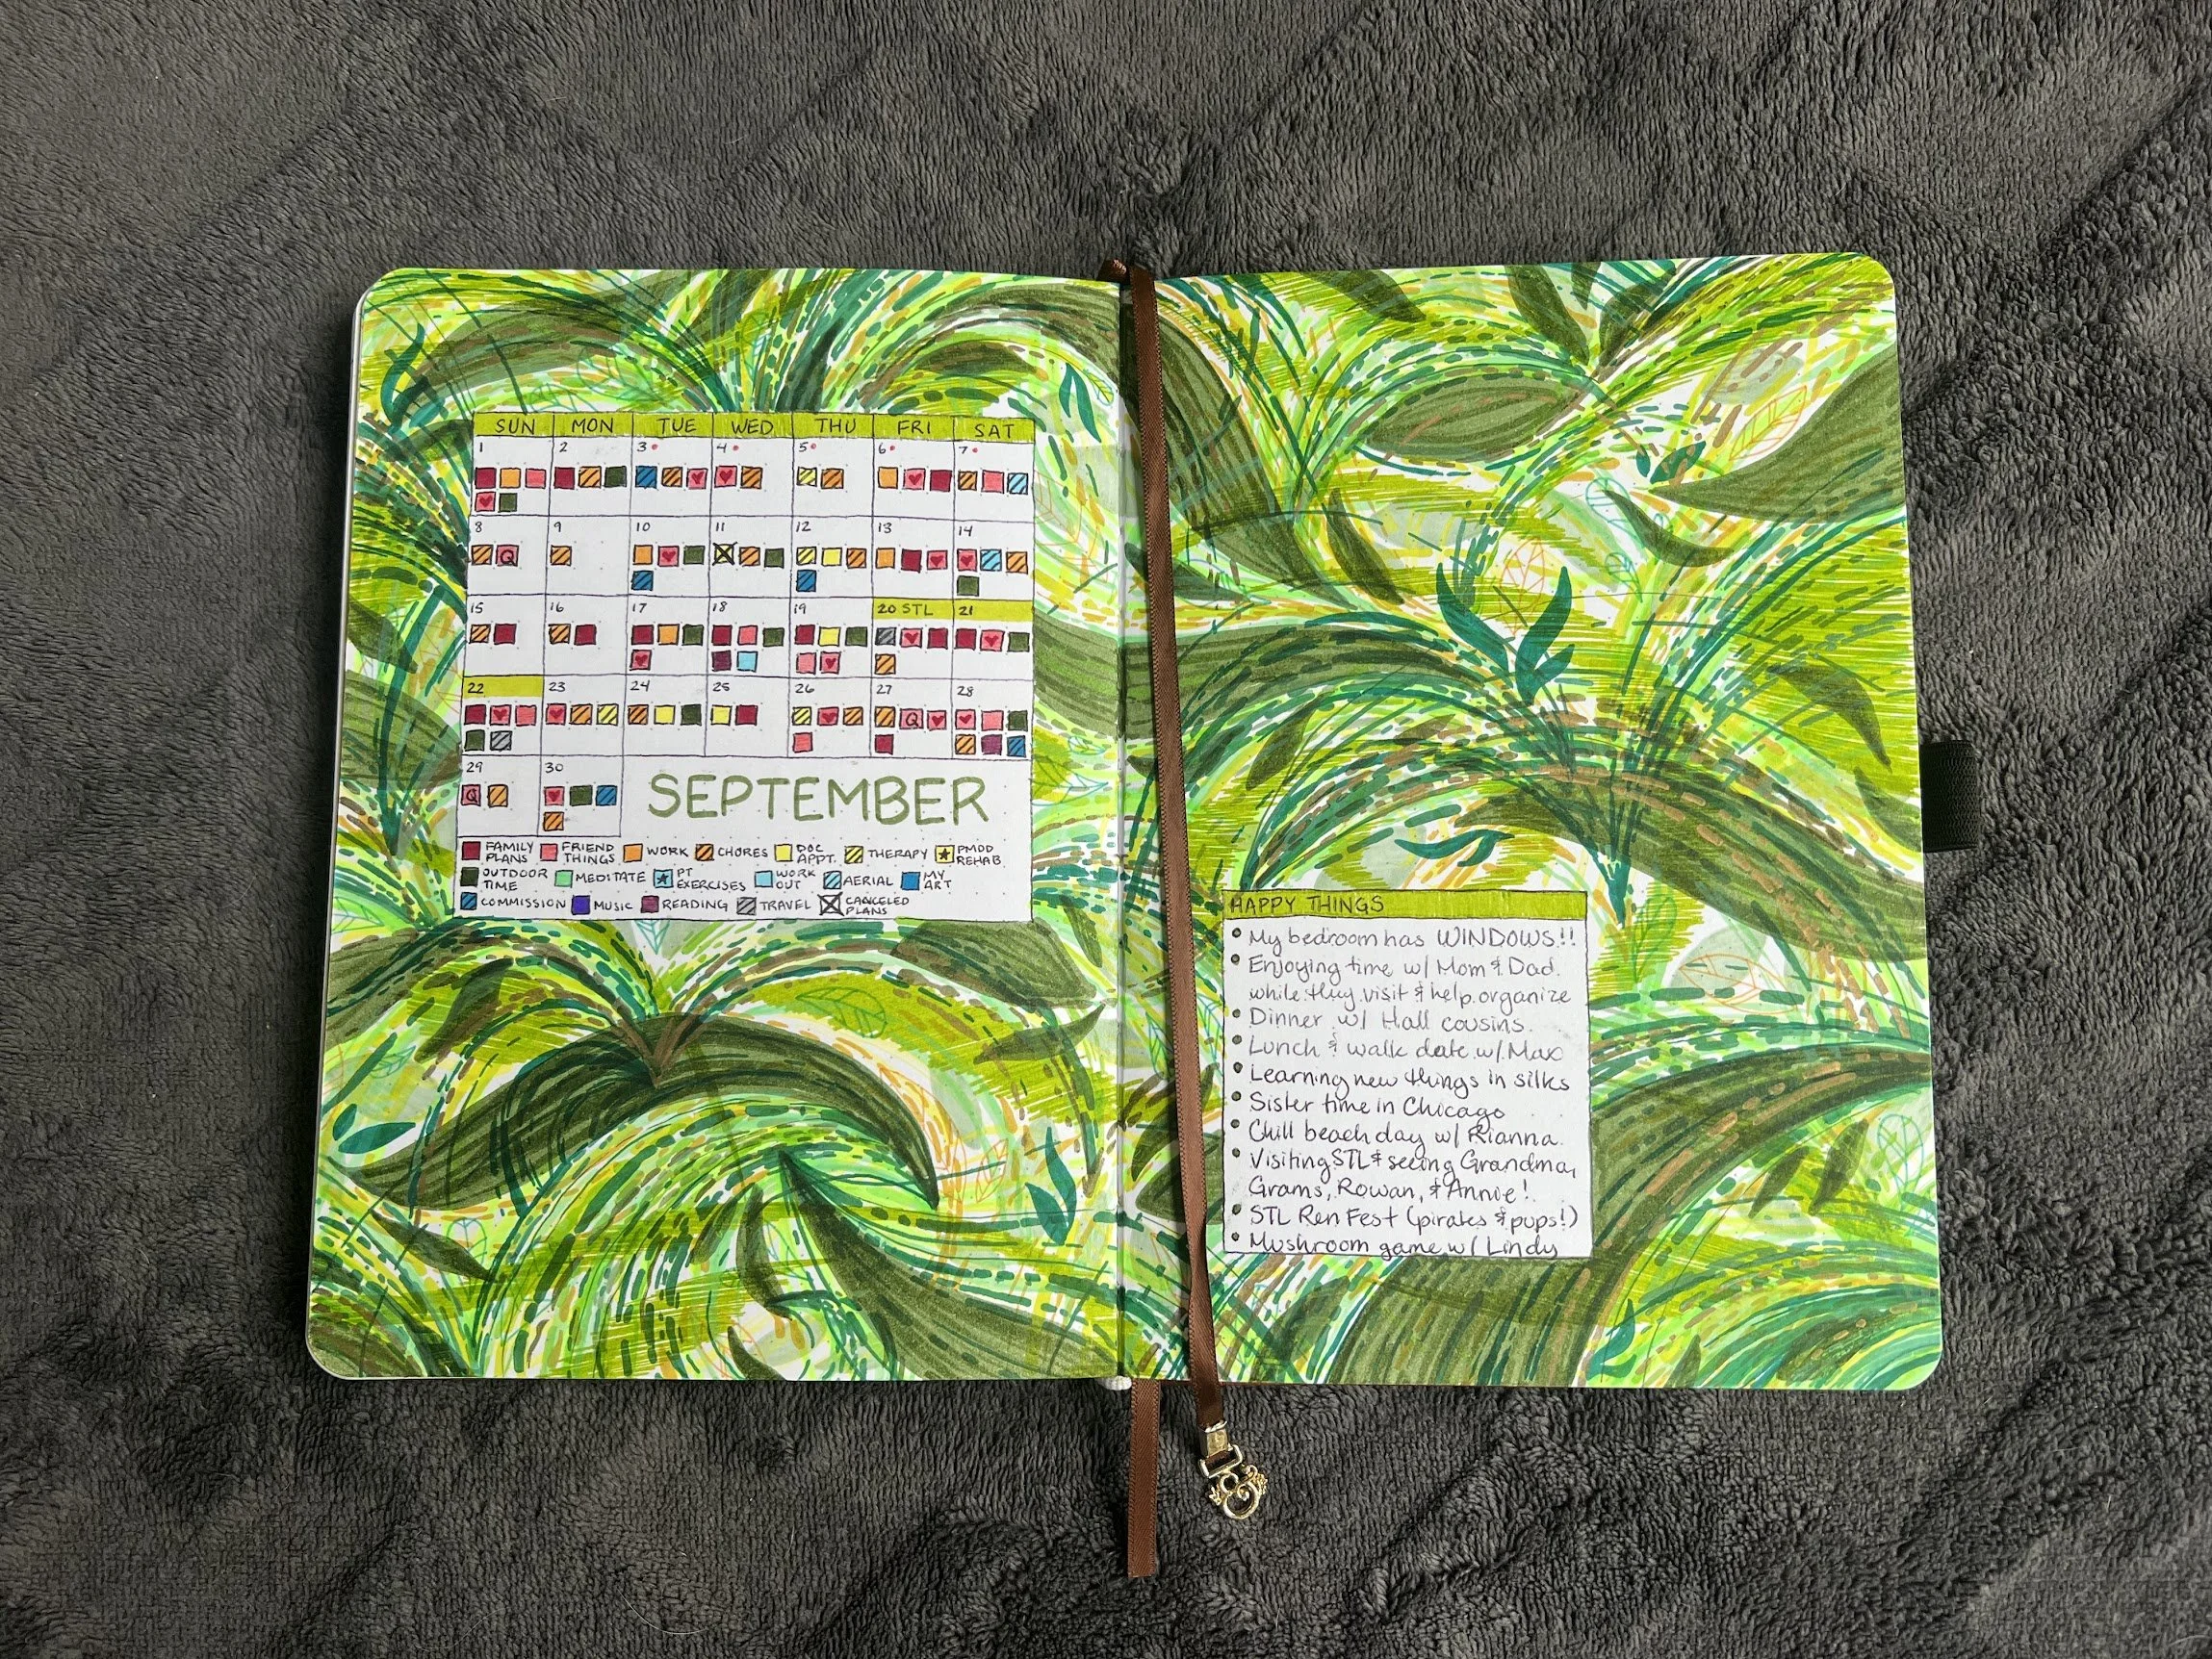 SUN MON TUE WED THU FRI SAT
1 2 3 4 5 6 7
8 9 10 11 12 13 14
Q
15 16 17 18 19 20 STL 21
22 23 24 25 26 27 28
Q
29 30
Q
SEPTEMBER
FAMILY PLANS FRIEND THINGS WORK CHORES DOC APPT. THERAPY PMDD REHAB.
OUTDOOR TIME MEDITATE PT EXERCISES WORK OUT AERIAL MY ART
COMMISSION MUSIC READING TRAVEL CANCELED PLANS
HAPPY THINGS
• My bedroom has WINDOWS!!
• Enjoying time w/ Mom & Dad
while they visit & help organize
• Dinner w/ Hall cousins
• Lunch & walk date w/ Max
• Learning new things in silks
• Sister time in Chicago
• Chill beach day w/ Rianna
• Visiting STL & seeing Grandma,
Grams, Rowan, & Annie!
• STL Ren Fest (pirates & pups!)
• Mushroom game w/ Lindy